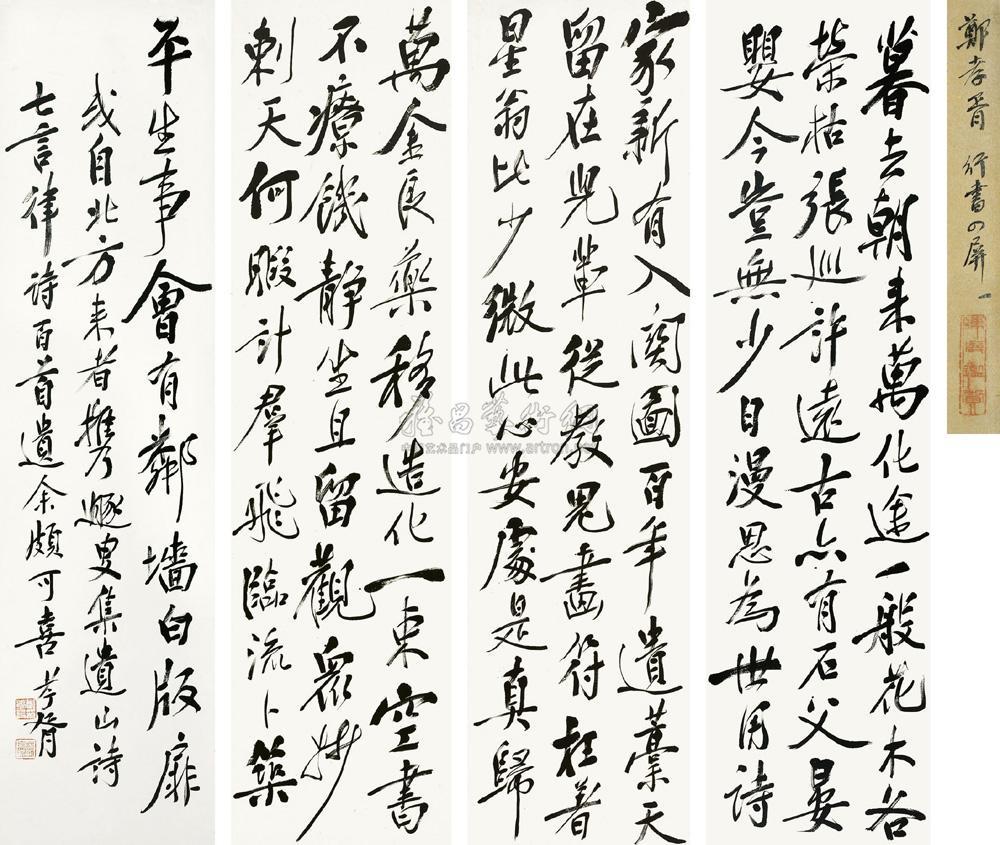 鄭孝胥 行書四屏 一
暮去朝来萬化途一般花木各
榮枯張巡許遠古亦有石父晏
嬰今豈無少日漫思為世用詩
家新有入關圖百年遺藁天
留在兒輩從教鬼畫符枉著
星翁比少微此心安處是真歸
萬金良藥移造化一束空書
不療饑静坐且留觀衆妙
刺天何暇計羣飛臨流卜築
平生事會有鄰墻白版扉
或自北方来者攜乃遯叟集遺山詩
七言律詩百首遺余頗可喜 孝胥